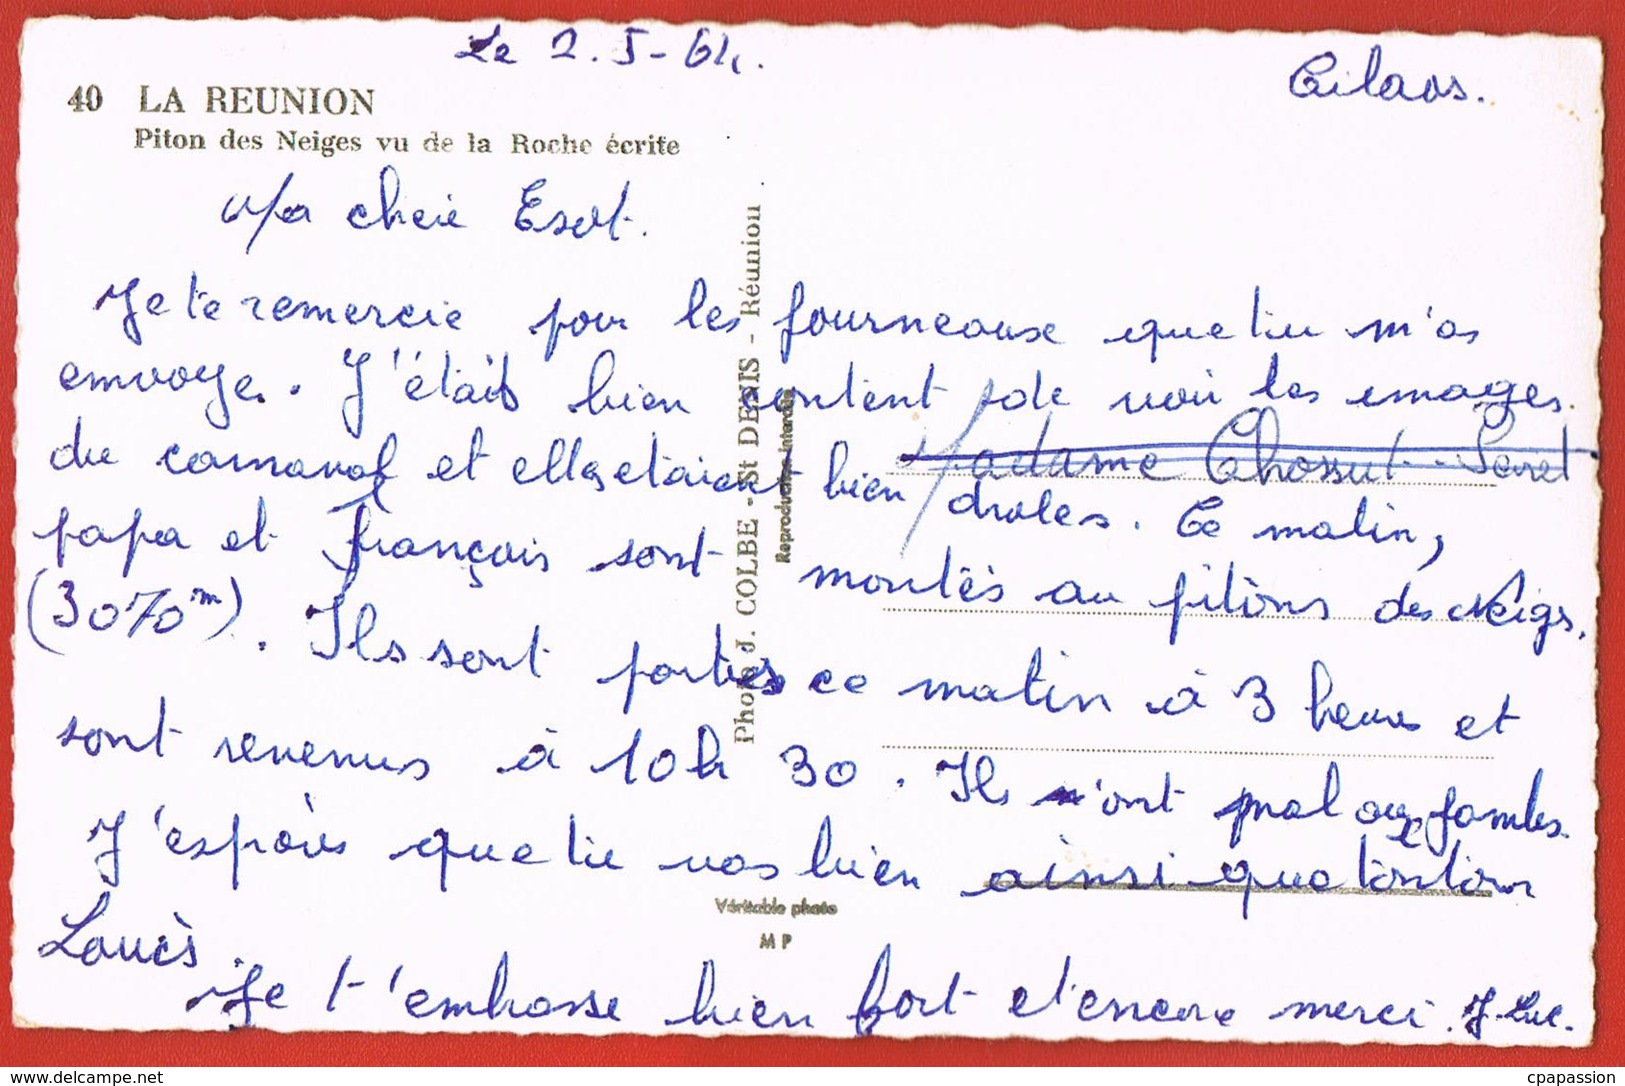 Le 2.5-64.
Cilaos.
40 LA REUNION
Piton des Neiges vu de la Roche écrite
Ma cherie Esot.
Je te remercie pour les fourneause que tu m'as
envoye. J'étais bien content de voir les images.
Madame Chossut-Perret
du carnaval et elles etaient bien droles. Ce matin,
papa et François sont montés au pitons des Neigs.
(3070m). Ils sont partis ce matin à 3 heures et
sont revenus à 10h 30. Ils n'ont mal au jambes.
J'espère que tu vas bien ainsi que tonton
Loués.
Je t'embrasse bien fort et encore merci. J-Luc.
Photo J. COLBE - St DENIS - Réunion
Reproduction interdite
Véritable photo
MP
delcampe.net
cpapassion